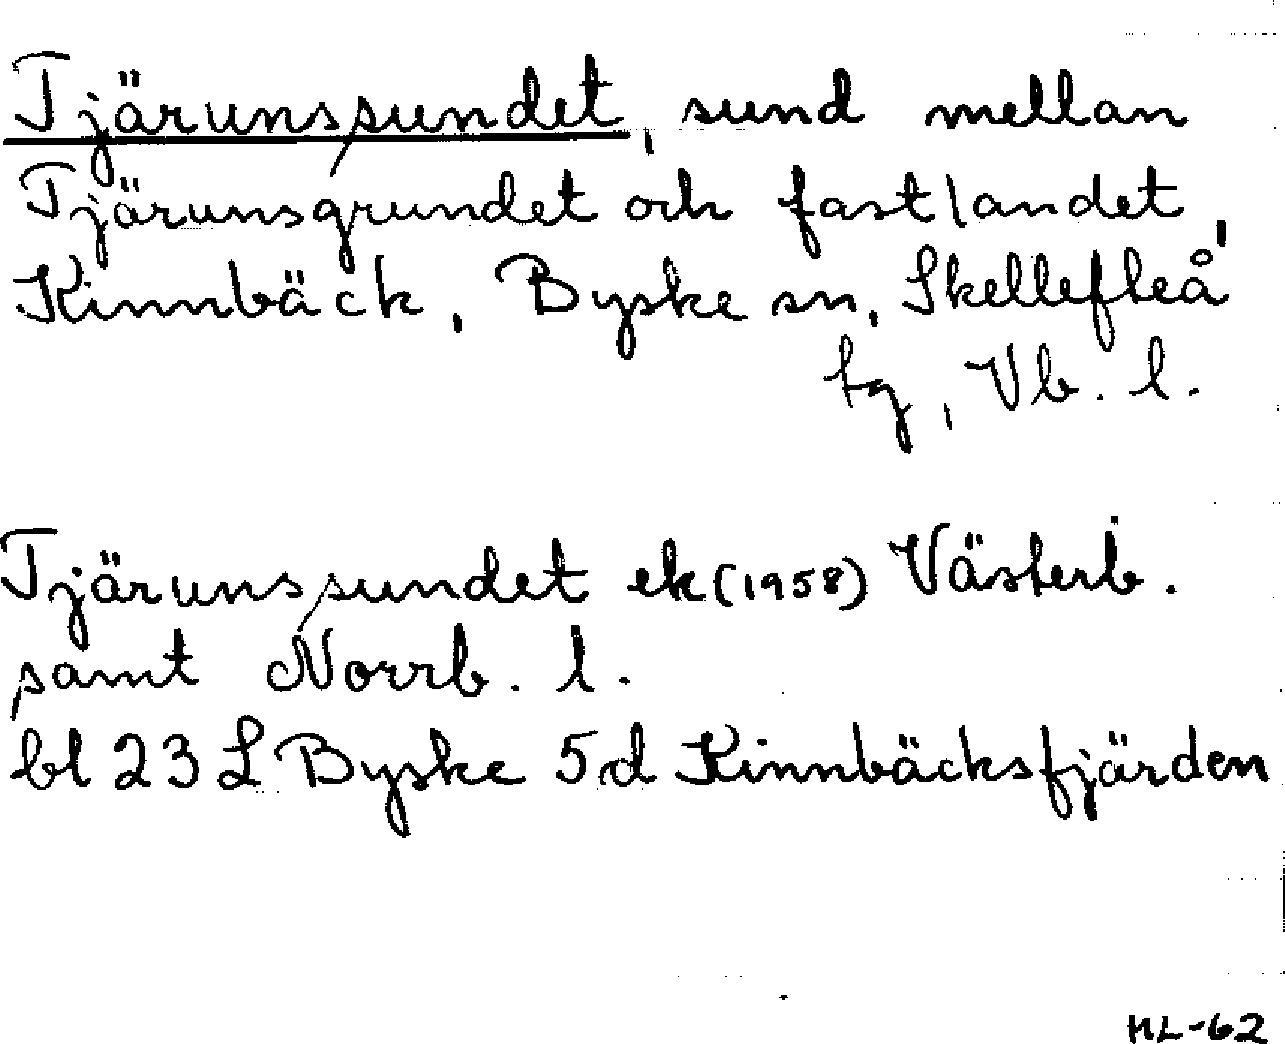 Tjärunssundet, sund mellan
Tjärunsgrundet och fastlandet,
Kinnbäck, Byske sn, Skellefteå
tg, Vb. l.
Tjärunssundet ek (1958) Västerb.
samt Norrb. l.
bl 23 L Byske 5d Kinnbäcksfjärden
HL-62